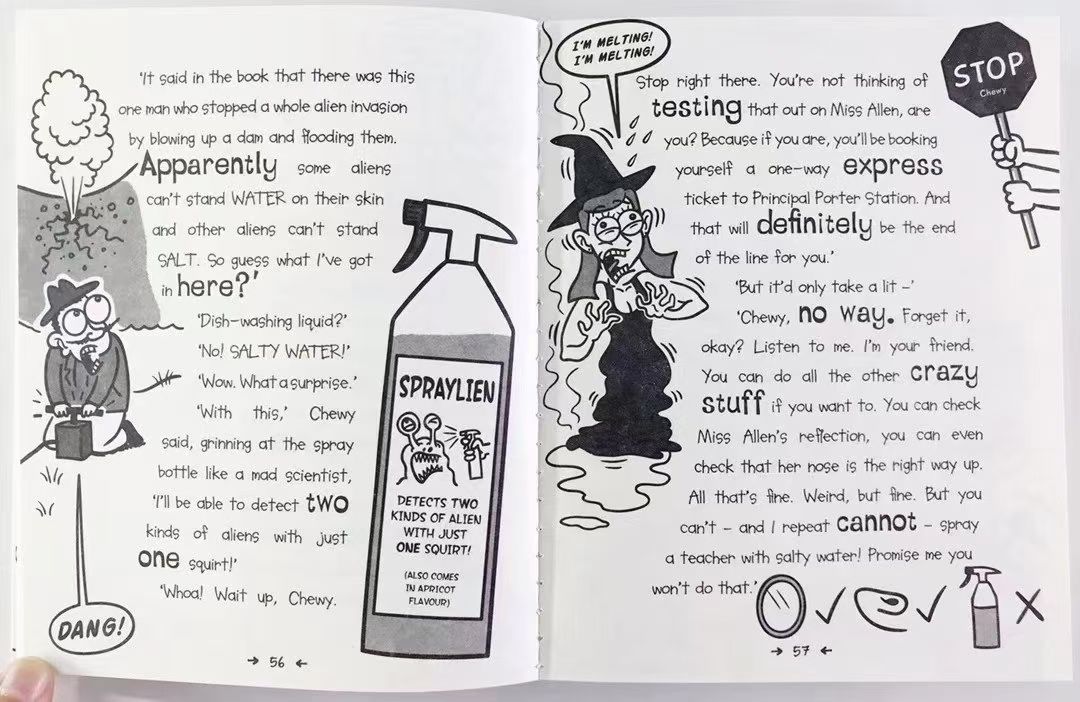 'It said in the book that there was this
one man who stopped a whole alien invasion
by blowing up a dam and flooding them.
Apparently some aliens
can't stand WATER on their skin
and other aliens can't stand
SALT. So guess what I've got
in here?'
'Dish-washing liquid?'
'No! SALTY WATER!'
'Wow. What a surprise.'
'With this,' Chewy
said, grinning at the spray
bottle like a mad scientist,
'I'll be able to detect two
kinds of aliens with just
one squirt!'
'Whoa! Wait up, Chewy.
DANG!
SPRAYLIEN
DETECTS TWO
KINDS OF ALIEN
WITH JUST
ONE SQUIRT!
(ALSO COMES
IN APRICOT
FLAVOUR)
56
I'M MELTING!
I'M MELTING!
STOP
Chewy
Stop right there. You're not thinking of
testing that out on Miss Allen, are
you? Because if you are, you'll be booking
yourself a one-way express
ticket to Principal Porter Station. And
that will definitely be the end
of the line for you.'
'But it'd only take a lit –'
'Chewy, no way. Forget it,
okay? Listen to me. I'm your friend.
You can do all the other crazy
stuff if you want to. You can check
Miss Allen's reflection, you can even
check that her nose is the right way up.
All that's fine. Weird, but fine. But you
can't – and I repeat cannot – spray
a teacher with salty water! Promise me you
won't do that.'
57